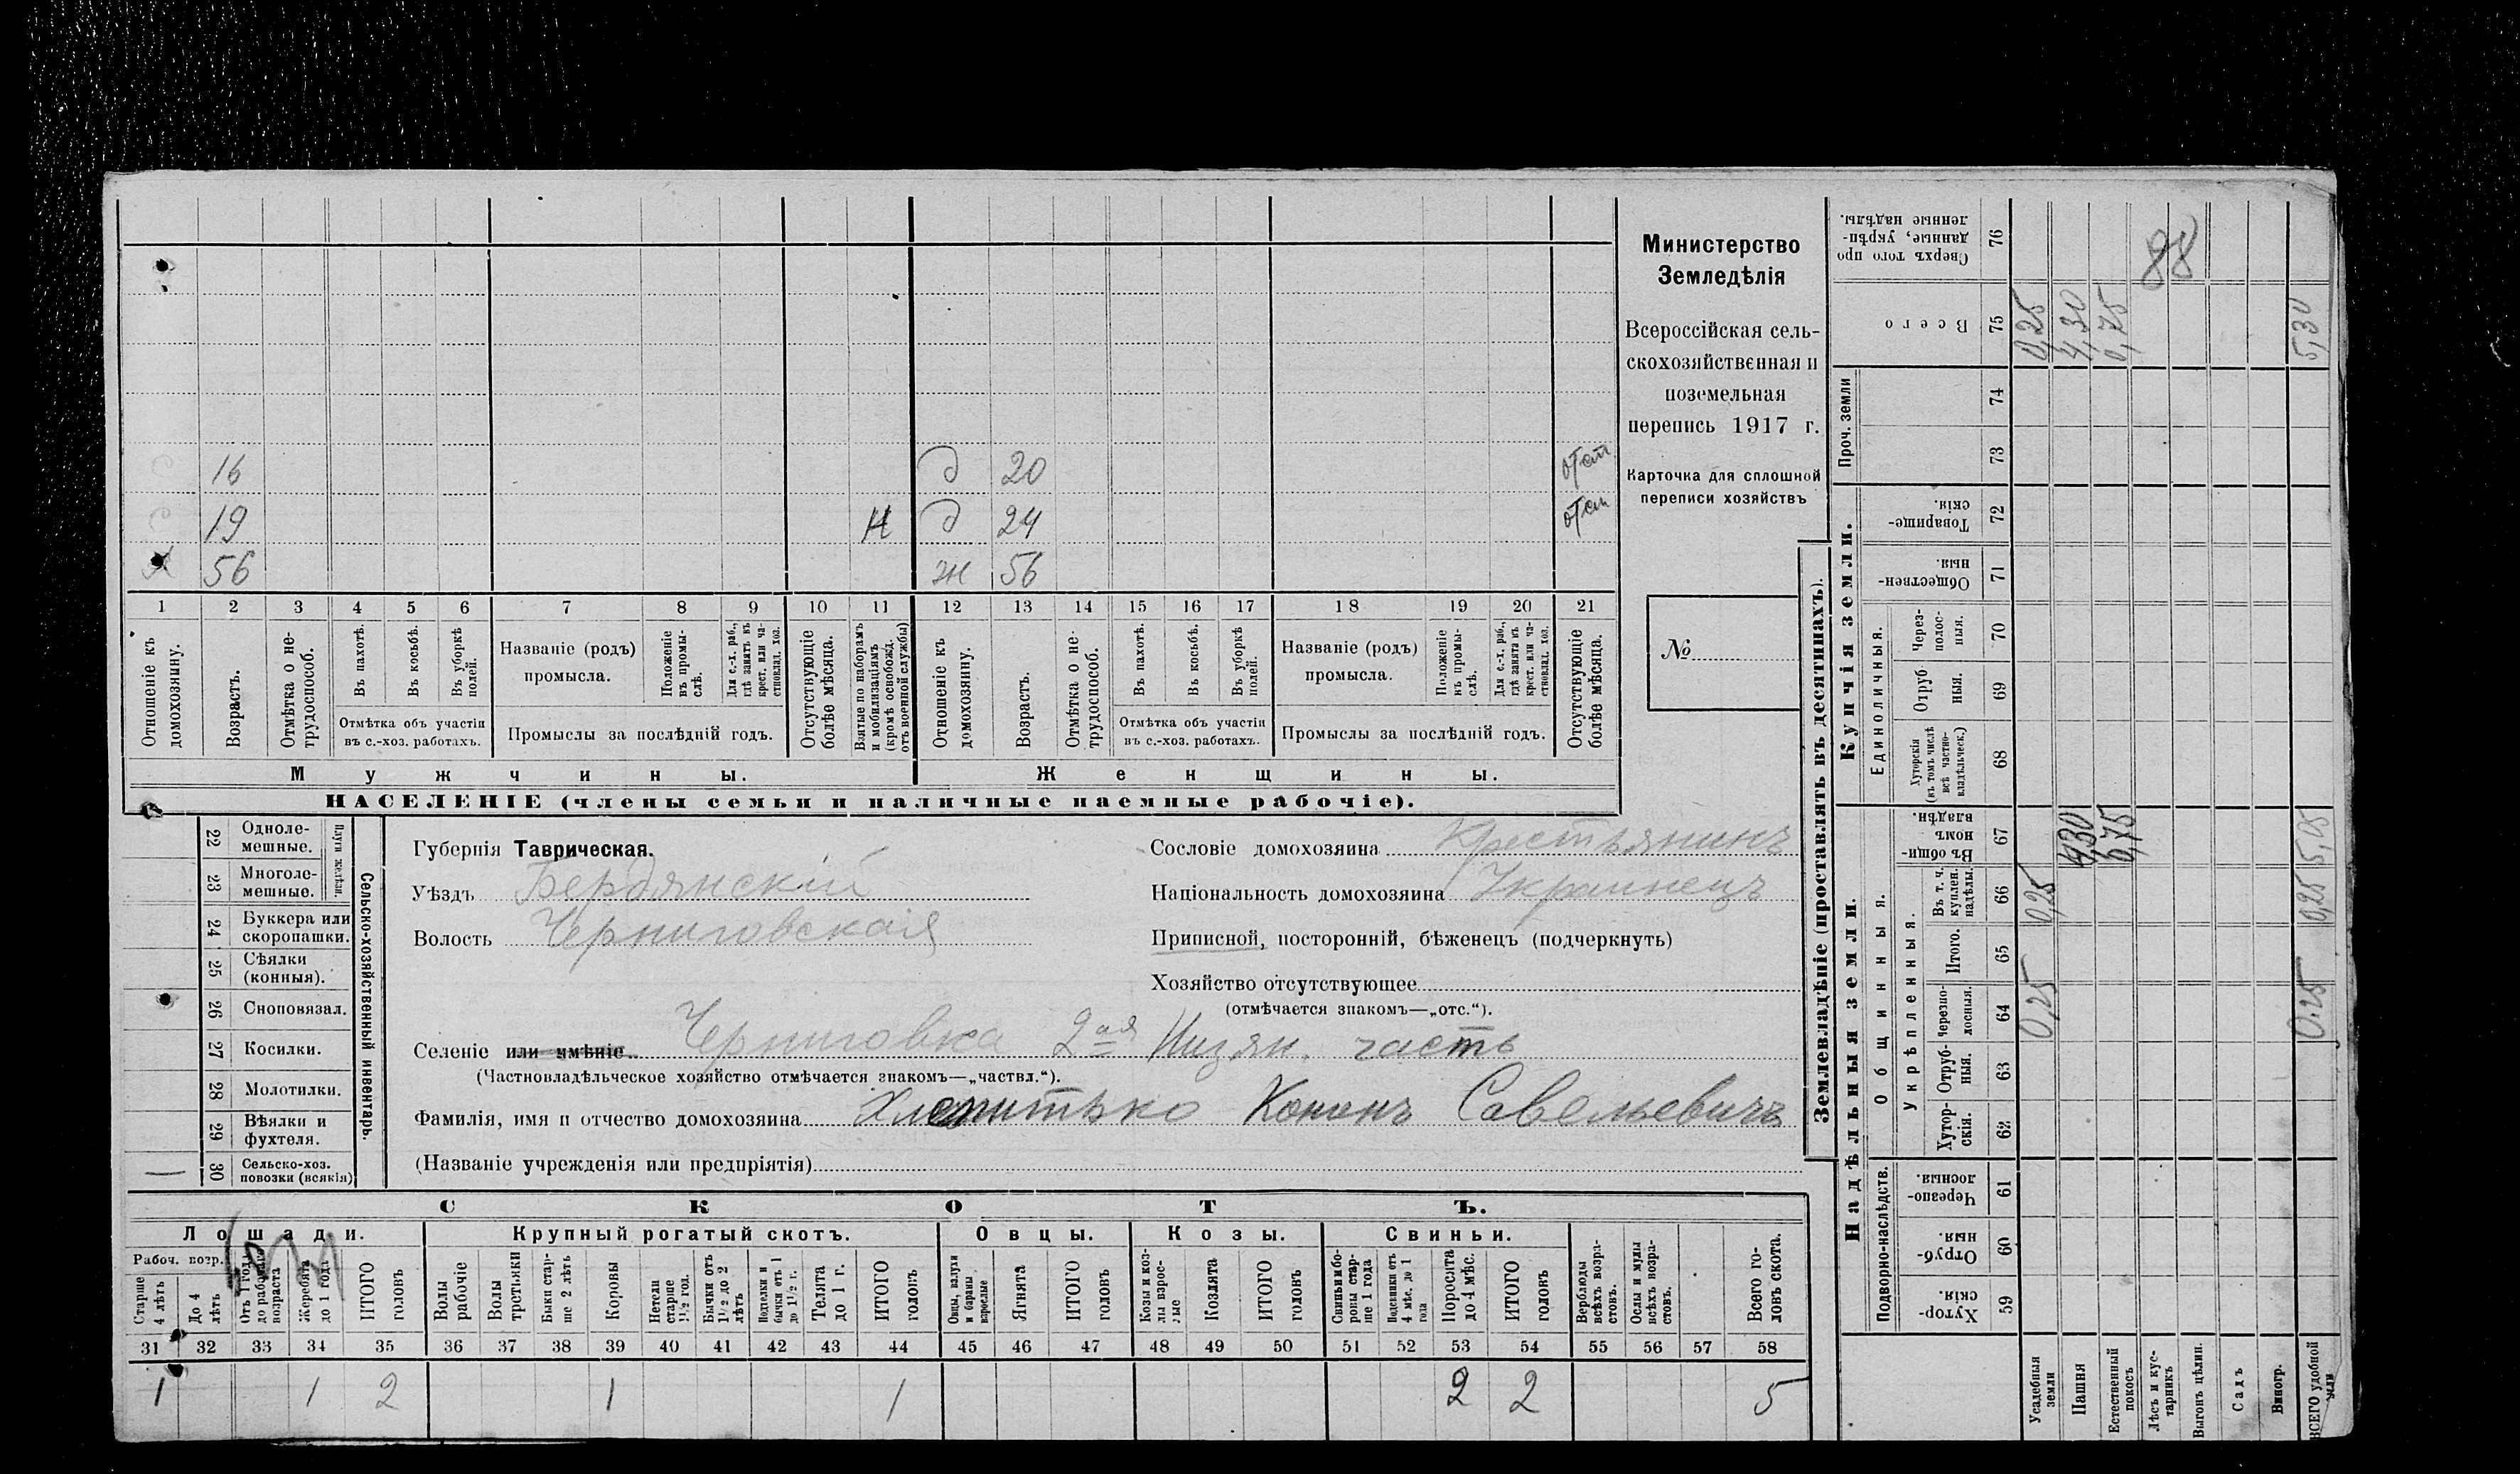 Министерство
Земледѣлія
Всероссійская сель-
скохозяйственная и
поземельная
перепись 1917 г.
Карточка для сплошной
переписи хозяйствъ
№
16 д 20 отст
19 н д 24 отст
56 ж 56
1 2 3 4 5 6 7 8 9 10 11 12 13 14 15 16 17 18 19 20 21
Отношеніе къ домохозяину.
Возрастъ.
Отмѣтка о не-трудоспособ.
Въ пахотѣ.
Въ косьбѣ.
Въ уборкѣ полей.
Отмѣтка объ участіи
въ с.-хоз. работахъ.
Названіе (родъ)
промысла.
Положеніе въ промы-слѣ.
Для с.-х. раб., гдѣ занятъ въ крест. или ча-стновлад. хоз.
Промыслы за послѣдній годъ.
Отсутствующіе болѣе мѣсяца.
Взятые по наборамъ и мобилизаціямъ (кромѣ освобожд. отъ военной службы)
Отношеніе къ домохозяину.
Возрастъ.
Отмѣтка о не-трудоспособ.
Въ пахотѣ.
Въ косьбѣ.
Въ уборкѣ полей.
Отмѣтка объ участіи
въ с.-хоз. работахъ.
Названіе (родъ)
промысла.
Положеніе въ промы-слѣ.
Для с.-х. раб., гдѣ занята въ крест. или ча-стновлад. хоз.
Промыслы за послѣдній годъ.
Отсутствующіе болѣе мѣсяца.
Мужчины. Женщины.
НАСЕЛЕНІЕ (члены семьи и наличные наемные рабочіе).
22 Одноле-мешные.
23 Многоле-мешные.
Плуги желѣзн.
24 Буккера или скоропашки.
25 Сѣялки (конныя).
26 Сноповязал.
27 Косилки.
28 Молотилки.
29 Вѣялки и фухтеля.
30 Сельско-хоз. повозки (всякія)
Сельско-хозяйственный инвентарь.
Губернія Таврическая.
Уѣздъ Бердянскій
Волость Черниговская
Сословіе домохозяина Крестьянинъ
Національность домохозяина Украинецъ
Приписной, посторонній, бѣженецъ (подчеркнуть)
Хозяйство отсутствующее
(отмѣчается знакомъ—„отс.“).
Селеніе или имѣніе Черниговка 2ая Низян. часть
(Частновладѣльческое хозяйство отмѣчается знакомъ—„частвл.“).
Фамилія, имя и отчество домохозяина Кононъ Савельевичъ
(Названіе учрежденія или предпріятія)
СКОТЪ.
Лошади. Крупный рогатый скотъ. Овцы. Козы. Свиньи.
Рабоч. возр.
Старше 4 лѣтъ
До 4 лѣтъ
Отъ 1 года до рабочаго возраста
Жеребята до 1 года
ИТОГО головъ
Волы рабочіе
Волы третьяки
Быки стар-ше 2 лѣтъ
Коровы
Нетели старше 1½ год.
Бычки отъ 1½ до 2 лѣтъ
Подтелки и бычки отъ 1 до 1½ г.
Телята до 1 г.
ИТОГО головъ
Овцы, валухи и бараны взрослые
Ягнята
ИТОГО головъ
Козы и коз-лы взрос-лые
Козлята
ИТОГО головъ
Свиньи и бо-ровы стар-ше 1 года
Подсвинки отъ 4 мѣс. до 1 года
Поросята до 4 мѣс.
ИТОГО головъ
Верблюды всѣхъ возра-стовъ.
Ослы и мулы всѣхъ возра-стовъ.
Всего го-ловъ скота.
31 32 33 34 35 36 37 38 39 40 41 42 43 44 45 46 47 48 49 50 51 52 53 54 55 56 57 58
1 1 2 1 1 2 2 5
Землевладѣніе (проставлять въ десятинахъ).
Надѣльныя земли. Купчія земли.
Подворно-наслѣдств.
Общинныя.
Укрѣпленныя.
Единоличныя.
Проч. земли
Хутор-скія. 59
Отруб-ныя. 60
Черезпо-лосныя. 61
Хутор-скія. 62
Отруб-ныя. 63
Черезпо-лосныя. 64
Итого. 65
Въ т. ч. куплен. надѣлы. 66
Въ общи-номъ владѣн. 67
Хуторскія (въ томъ числѣ всѣ частно-владѣльческ.) 68
Отруб-ныя. 69
Через-полос-ныя. 70
Обществен-ныя. 71
Товарище-скія. 72
73
74
Всего 75
Сверхъ того про-данные, укрѣп-ленные надѣлы. 76
Усадебныя земли 0,25 0,25 0,25
Пашня 4,30 4,30
Естественный покосъ 0,75 0,75
Лѣсъ и кус-тарникъ 88
Выгонъ цѣлин.
Садъ
Виногр.
ВСЕГО удобной земли 0.25 0,25 5,05 5,30